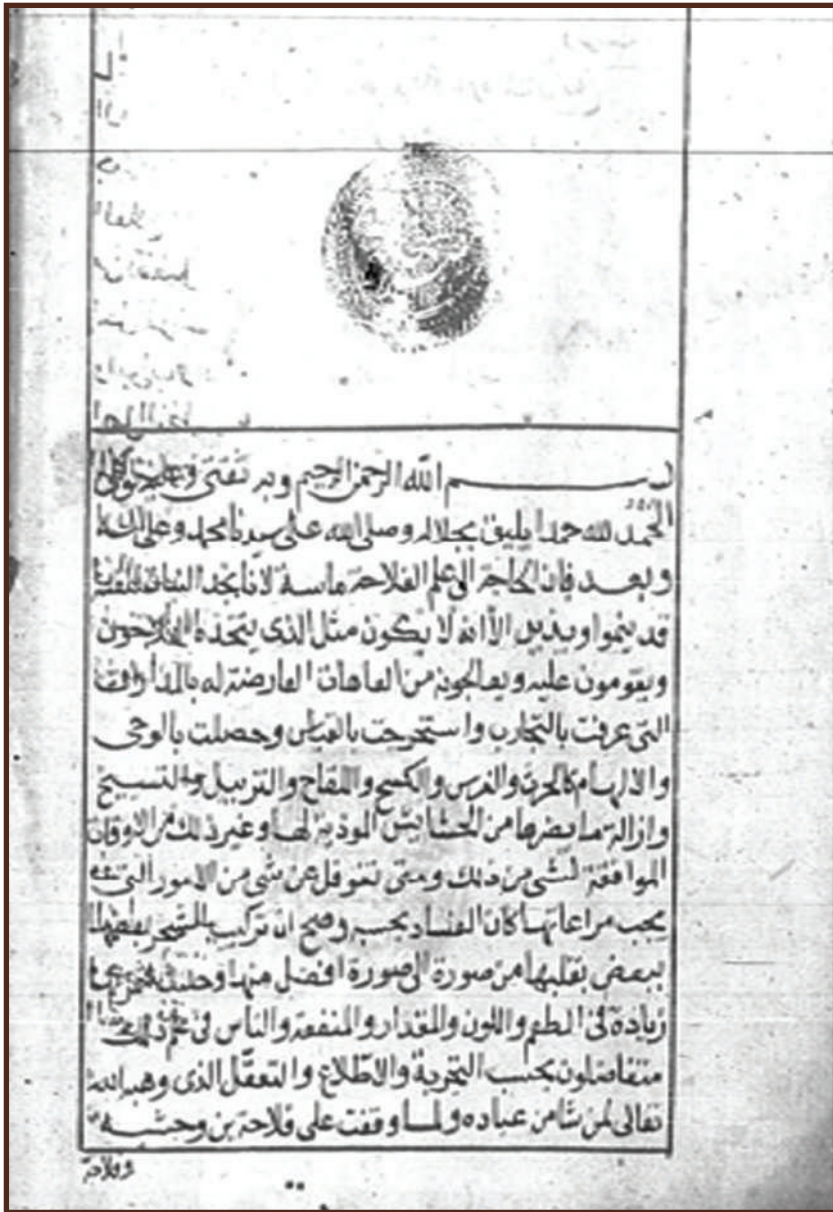 بسم الله الرحمن الرحيم وبه ثقتي
الحمد لله حمدا يليق بجلاله وصلى الله على سيدنا محمد وعلى اله
وبعد فان الحاجة الى علم الفلاحة ماسة لانا نجد النبات
قد ينموا ويذبل الا انه لا يكون مثل الذى يتخذه الفلاحون
ويقومون عليه ويعالجونه من العاهات العارضة له بالمداواة
التى عرفت بالتجارب واستخرجت بالقياس وحصلت بالوحى
والالهام كالحرث والغرس والكسح واللقاح والتزبيل والتسبيخ
وازالة ما يضرها من الحشايش الموذية لها وغير ذلك من الاوقات
الموافقة لشى من ذلك ومتى تغوفل عن شى من الامور التى
يجب مراعاتها كان الفساد بحسبه وصح ان تركيب الشجر بعضها
ببعض يقلبها من صورة الى صورة افضل منها
زيادة فى الطعم واللون والمقدار والمنفعة والناس فى علم ذلك
متفاضلون بحسب التجربة والاطلاع والتعقل الذى وهبه الله
تعالى لمن شا من عباده ولما وقفت على فلاحة بن وحشيه
وفلاحة